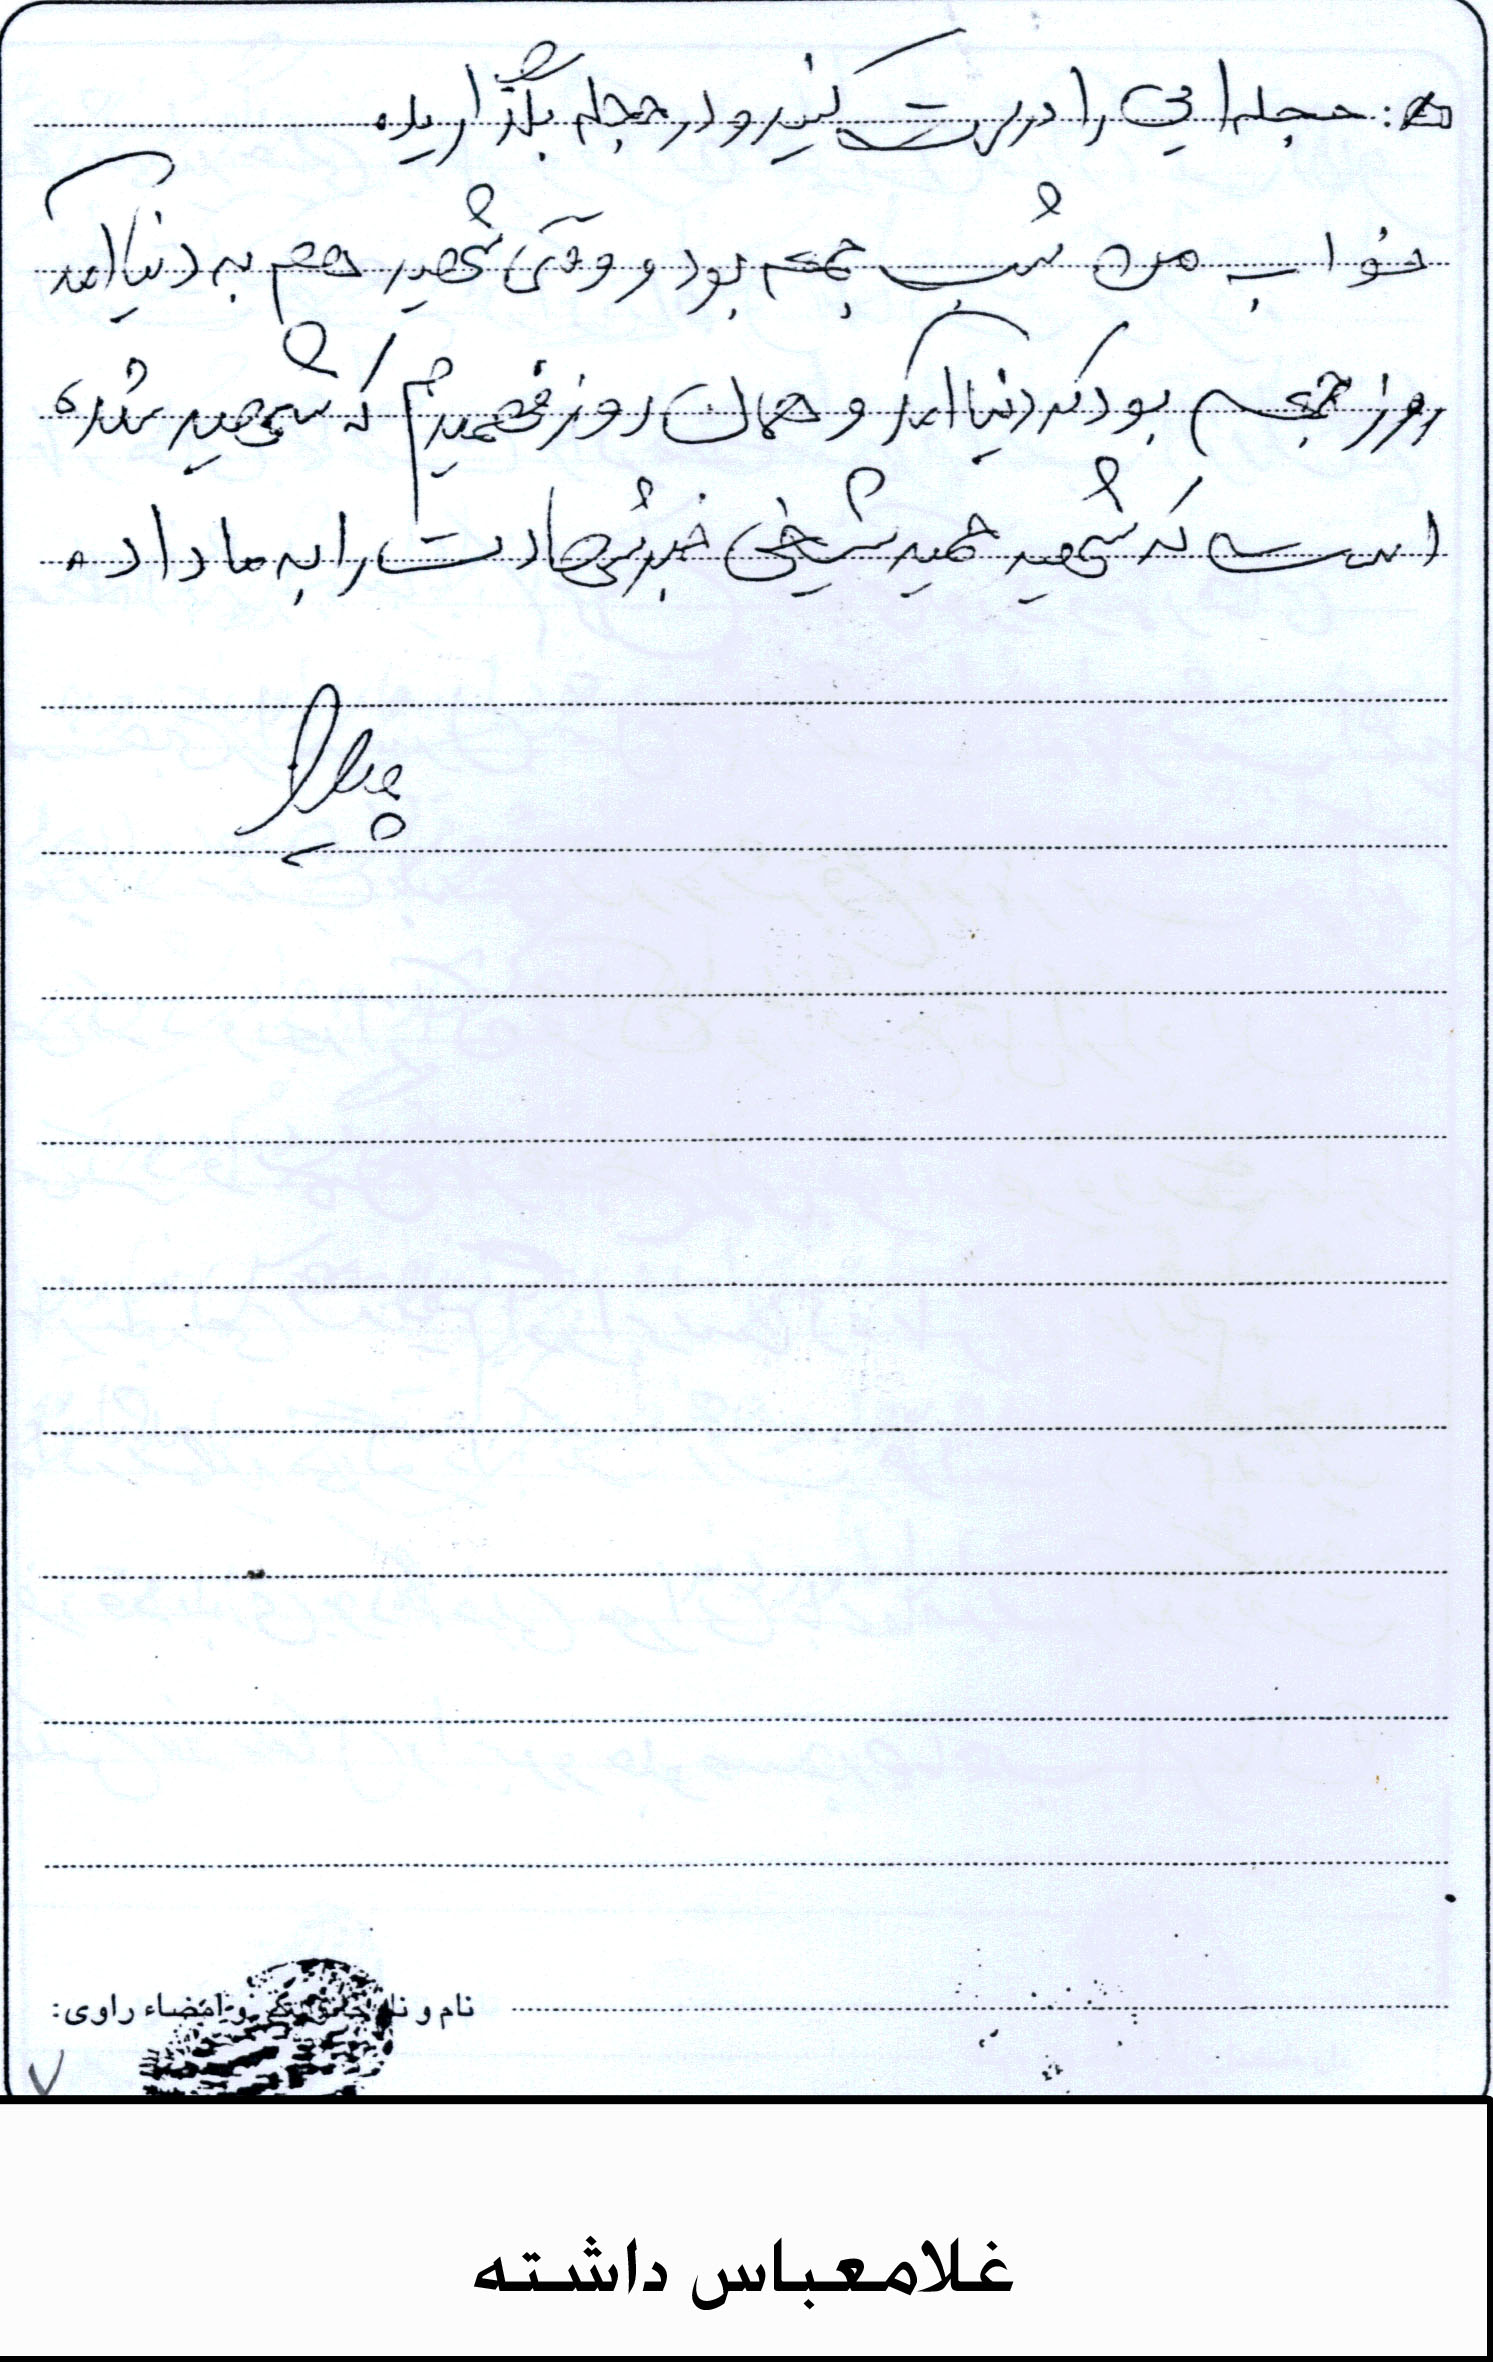 که: حجله ایی را درست کنید و در حجله بگذارید.
خواب من شب جمعه بود و وقتی شهید هم به دنیا آمد
روز جمعه بود که دنیا آمد و همان روز فهمیدیم که شهید شده
است که شهید حمید شیخی خبر شهادت را به ما داد.
نام و نام خانوادگی و امضاء راوی:
۷
غلامعباس داشته